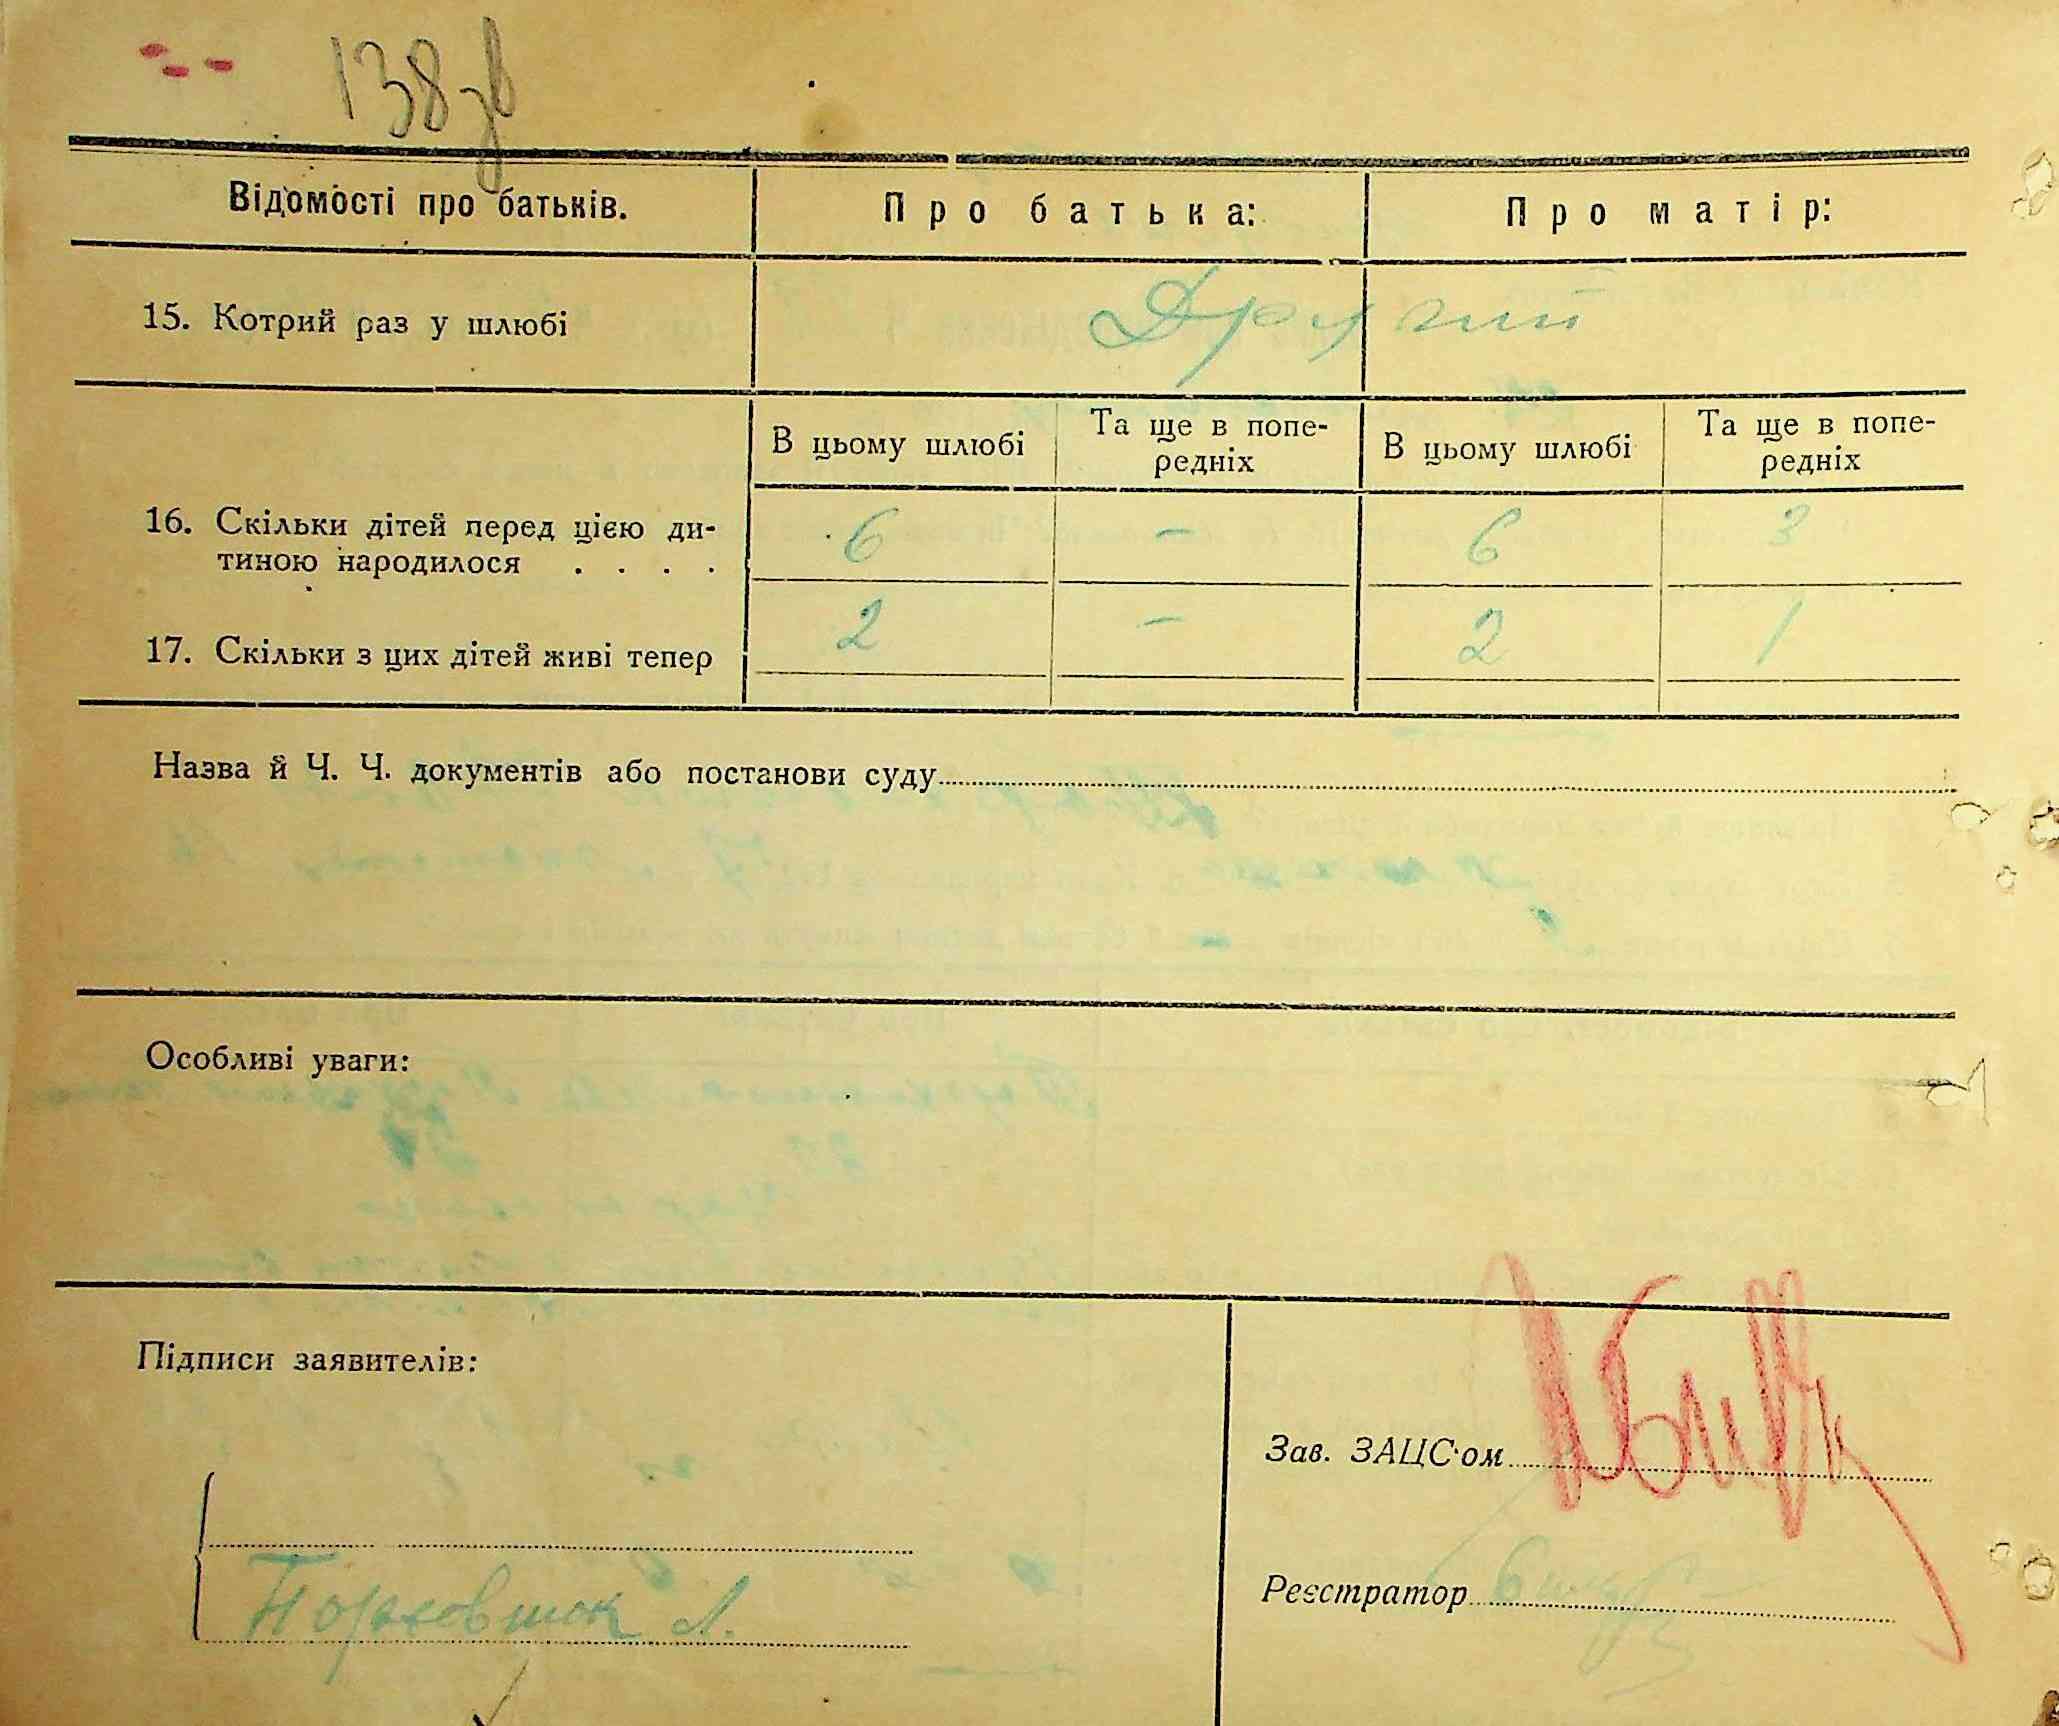 138зв
Відомості про батьків. Про батька: Про матір:
15. Котрий раз у шлюбі Другий
В цьому шлюбі Та ще в попе-
редніх В цьому шлюбі Та ще в попе-
редніх
16. Скільки дітей перед цією ди-
тиною народилося . . . . 6 – 6 3
17. Скільки з цих дітей живі тепер 2 – 2 1
Назва й Ч. Ч. документів або постанови суду
Особливі уваги:
Підписи заявителів:
Зав. ЗАЦС'ом
Реєстратор